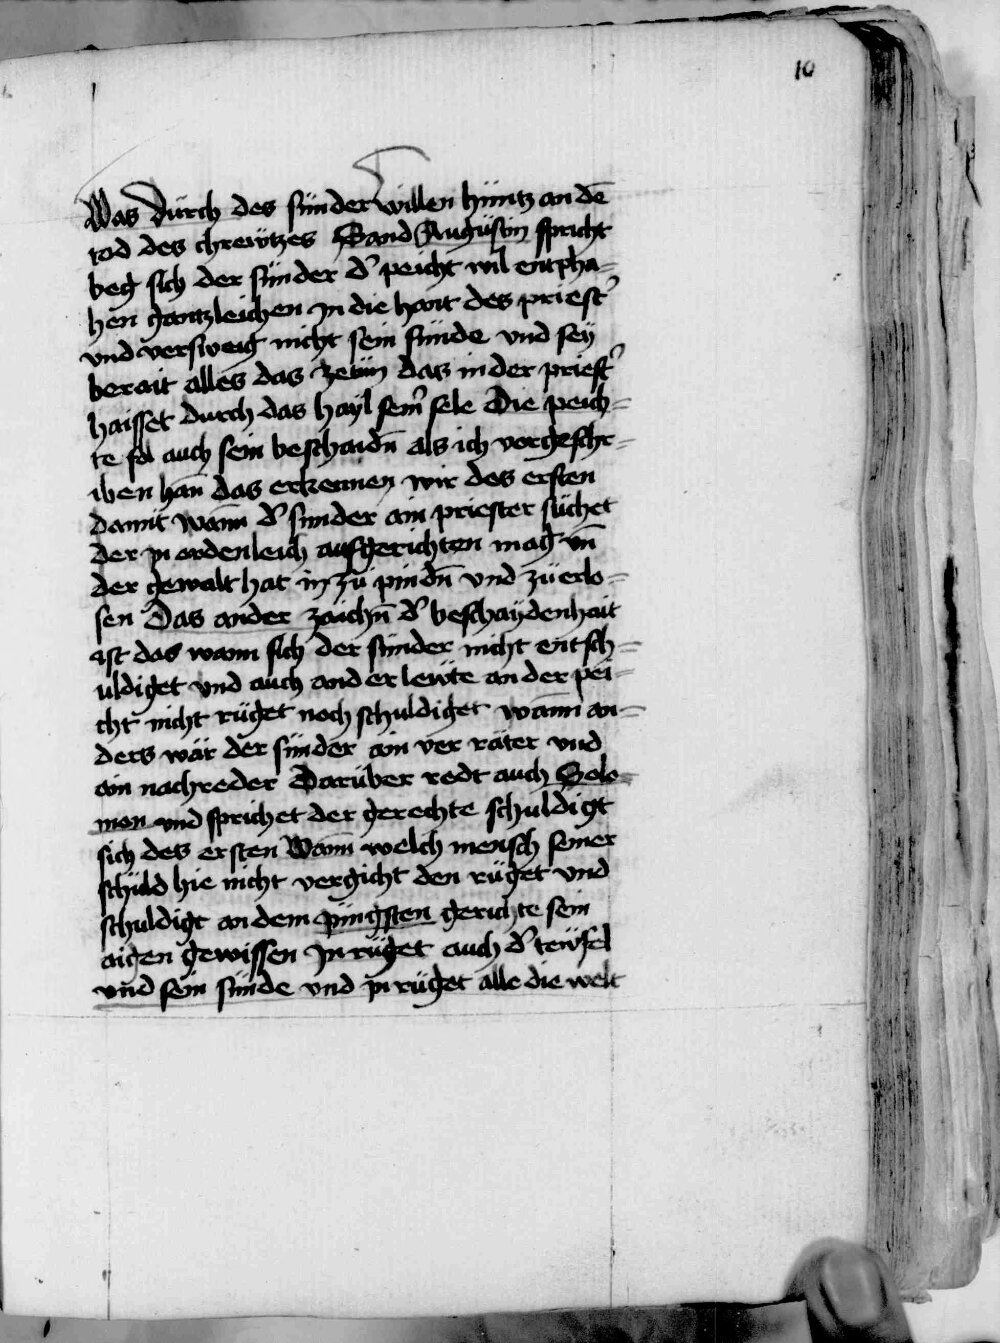 10
Was durch des sünder willen hüntz an dē
tod des chrewtzes Sand Augustin spricht
beg sich der sünder d' peicht wil entpha=
hen gantzleichen In die hant des priest'
vnd versweig nicht sein sünde vnd sey
berait alles das zetün das in der priest'
haisset durch das hayl sein' sele Die peich=
te sol auch sein beschaidn̄ als ich vorgeschr=
iben han̄ das erkennen wir des ersten
damit wann̄ d' sünder ain priester süchet
der in ordenleich aufgerichten mag vn̄
der gewalt hat in zü pindn̄ vnd zü erlo=
sen Das ander zaichn̄ d' beschaydenhait
ist das wann sich der sünder nicht entsch=
uldiget vnd auch ander lewte an der pei=
cht nicht rüget noch schuldiget wann̄ an=
ders wär der sünder ain ver räter vnd
ain nachreder Darüber redt auch Salo=
mon vnd sprichet der gerechte schuldigt
sich des ersten Wann̄ welch mensch seiner
schüld hie nicht vergicht den rüget vnd
schuldigt an dem jüngsten gerichte sein
aigen gewissen In rüget auch d' tewfel
vnd sein sünde vnd in rüget alle die welt